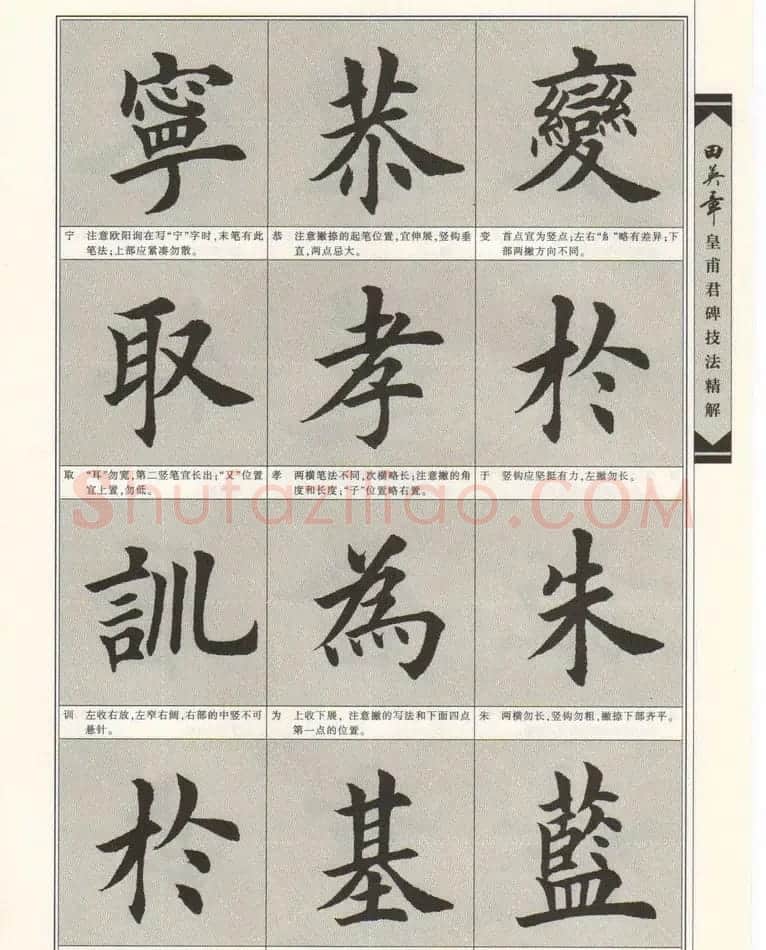 寧 恭 變
宁 注意欧阳询在写“宁”字时,末笔有此
笔法;上部应紧凑勿散。
恭 注意撇捺的起笔位置,宜伸展,竖钩垂
直,两点忌大。
变 首点宜为竖点;左右“糹”略有差异;下
部两撇方向不同。
取 孝 於
取 “耳”勿宽,第二竖笔宜长出;“又”位置
宜上置,勿低。
孝 两横笔法不同,次横略长;注意撇的角
度和长度;“子”位置略右置。
于 竖钩应坚挺有力,左撇勿长。
訓 為 朱
训 左收右放,左窄右阔,右部的中竖不可
悬针。
为 上收下展,注意撇的写法和下面四点
第一点的位置。
朱 两横勿长,竖钩勿粗,撇捺下部齐平。
於 基 藍
田英章皇甫君碑技法精解
Shufaziliao.COM